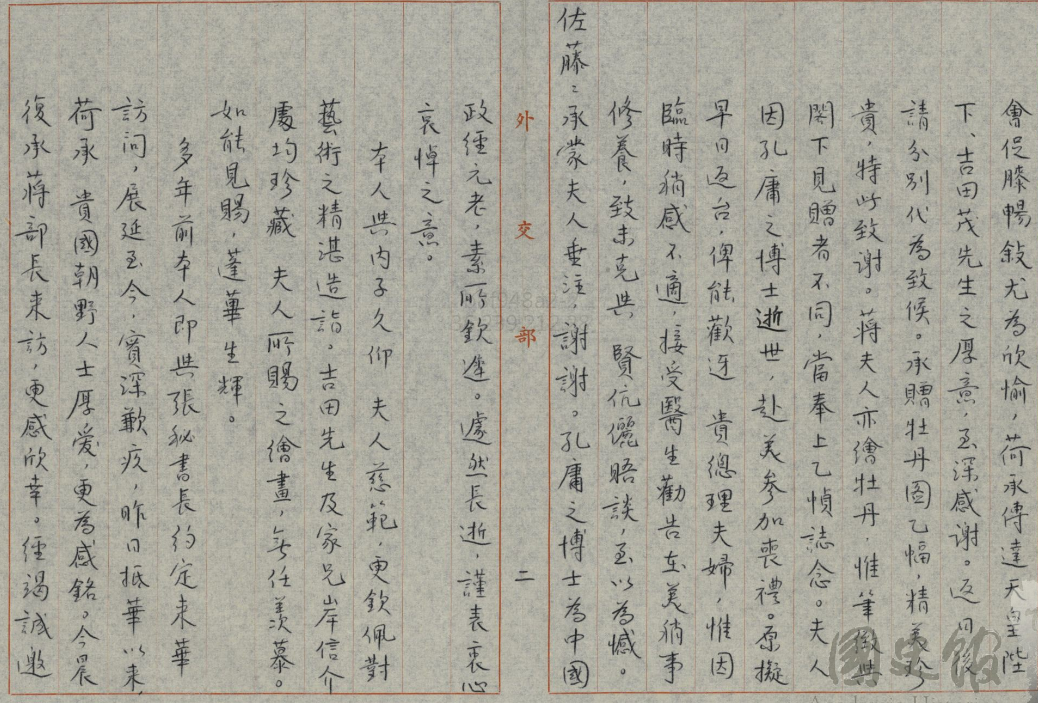 會促膝暢敍尤為欣愉，荷承傳達天皇陛
下、吉田茂先生之厚意，至深感謝。返日後
請分別代為致候。承贈牡丹图乙幅，精美珍
貴，特此致謝。蔣夫人亦繪牡丹，惟筆緻與
閣下見贈者不同，當奉上乙幀誌念。夫人
因孔庸之博士逝世，赴美參加喪禮。原擬
早日返台，俾能歡迓　貴總理夫婦，惟因
臨時稍感不適，接受醫生勸告在美稍事
修養，致未克與　賢伉儷晤談，至以為憾。
佐藤：承蒙夫人垂注，謝謝。孔庸之博士為中國
外交部
二
政經元老，素所欽遲。遽然長逝，謹表衷心
哀悼之意。
本人與內子久仰　夫人慈範，更欽佩對
藝術之精湛造詣。吉田先生及家兄岸信介
處均珍藏　夫人所賜之繪畫，無任羨慕。
如能見賜，蓬蓽生輝。
多年前本人即與張秘書長約定來華
訪问，展延至今，實深歉疚，昨日抵華以来，
荷承　貴國朝野人士厚愛，更為感銘。今晨
復承蔣部長来訪，更感欣幸。經竭誠邀
國史館